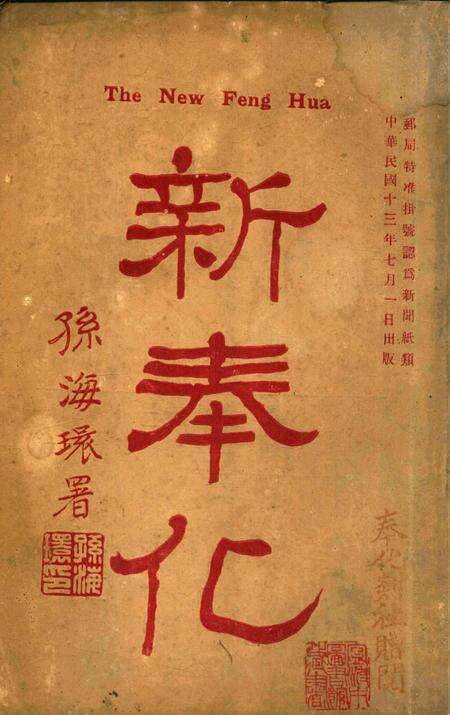 The New Feng Hua
郵局特准掛號認爲新聞紙類
中華民國十三年七月一日出版
新奉化
孫海環署
孫海環印